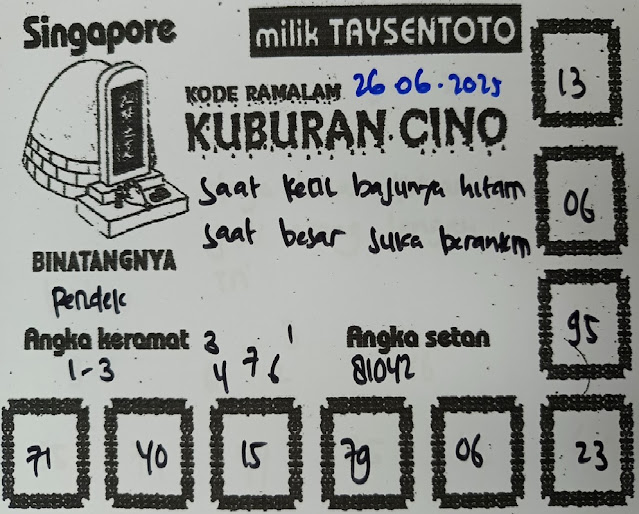 Singapore
milik TAYSENTOTO
KODE RAMALAM 26 06.2025
KUBURAN CINO
saat kecil bajunya hitam
saat besar suka berantem
BINATANGNYA
Pendek
Angka keramat
1-3
3 1
4 7 6
Angka setan
81042
13
06
95
71 40 15 79 06 23